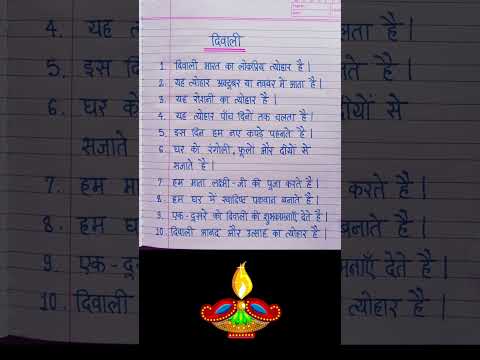 दिवाली
1. दिवाली भारत का लोकप्रिय त्योहार है।
2. यह त्योहार अक्टूबर या नवंबर में आता है।
3. यह रोशनी का त्योहार है।
4. यह त्योहार पाँच दिनों तक चलता है।
5. इस दिन हम नए कपड़े पहनते है।
6. घर को रंगोली, फूलों और दीयों से
सजाते है।
7. हम माता लक्ष्मी-जी की पूजा करते है।
8. हम घर में स्वादिष्ट पकवान बनाते है।
9. एक-दूसरे को दिवाली की शुभकामनाएँ देते है।
10. दिवाली आनंद और उत्साह का त्योहार है।